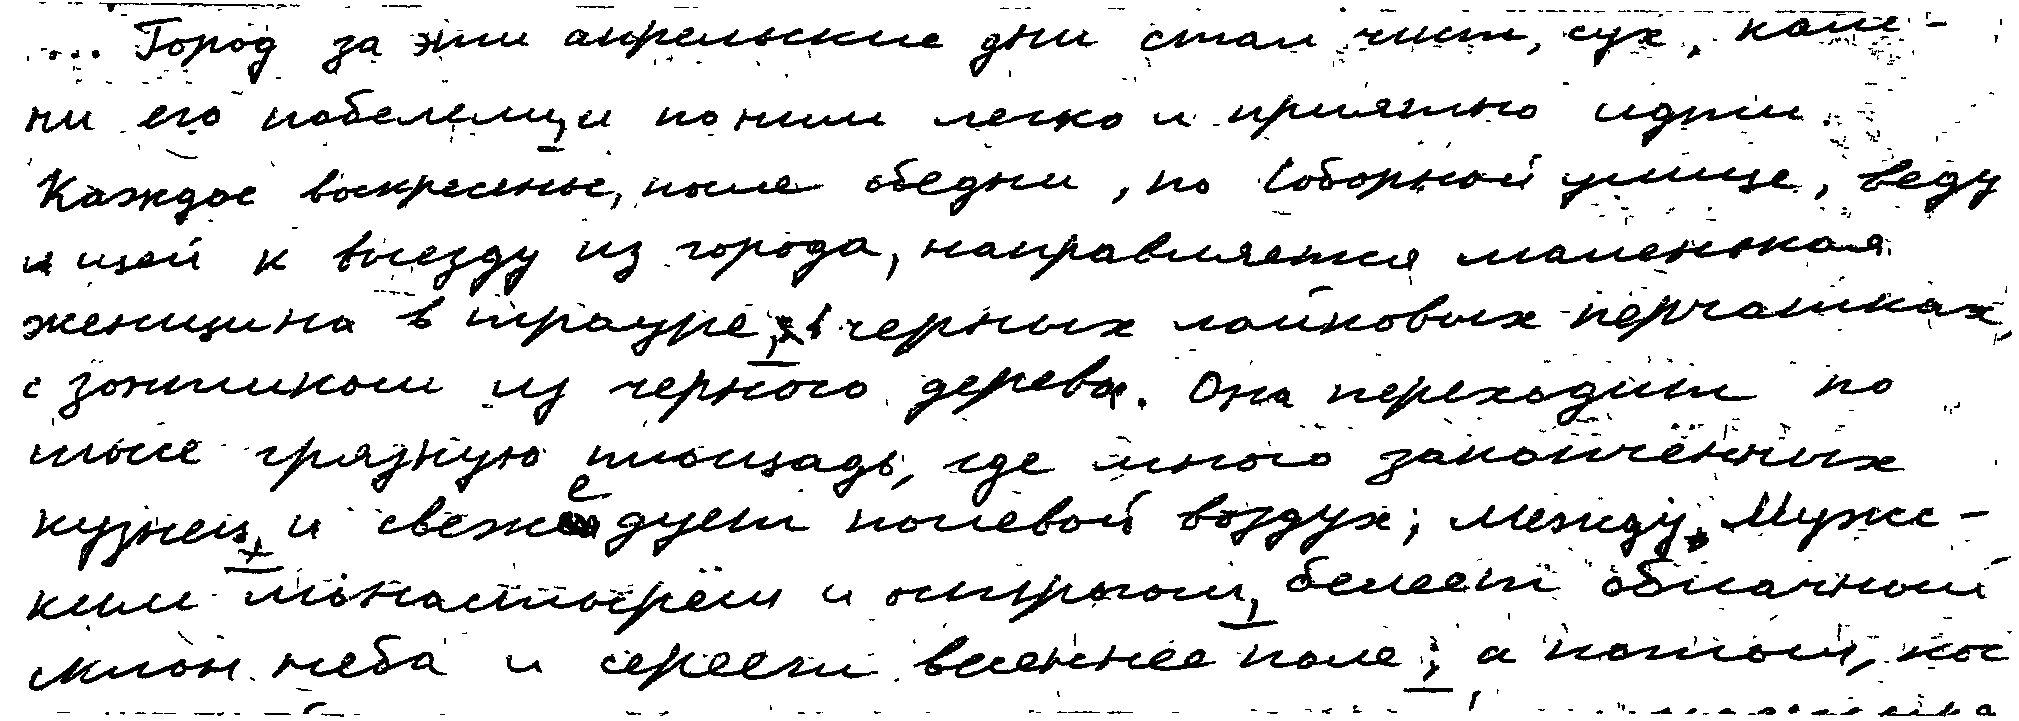 ... Город за эти апрельские дни стал чист, сух, каме-
ни его побелели, и по ним легко и приятно идти.
Каждое воскресенье, после обедни, по Соборной улице, веду
щей к выезду из города, направляется маленькая
женщина в трауре, в черных лайковых перчатках,
с зонтиком из черного дерева. Она переходит по
шоссе грязную площадь, где много закопчённых
кузнец, и свежо дует полевой воздух; между Мужс-
ким монастырём и острогом, белеет облачный
склон неба и сереет весеннее поле; а потом, ког